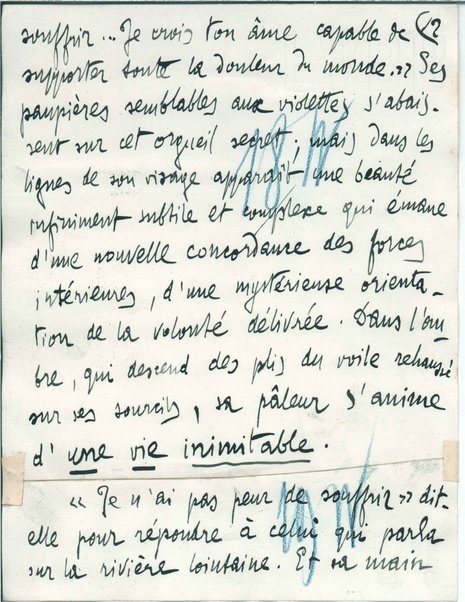 souffrir... Je crois ton âme capable de
supporter toute la douleur du monde. » Ses
paupières semblables aux violettes s'abais-
sent sur cet orgueil secret ; mais dans les
lignes de son visage apparaît une beauté
infiniment subtile et complexe qui émane
d'une nouvelle concordance des forces
intérieures, d'une mystérieuse orienta-
tion de la volonté délivrée. Dans l'om-
bre, qui descend des plis du voile rehaussé
sur ses sourcils, sa pâleur s'anime
d'une vie inimitable.
« Je n'ai pas peur de souffrir » dit-
elle pour répondre à celui qui parla
sur la rivière lointaine. Et sa main